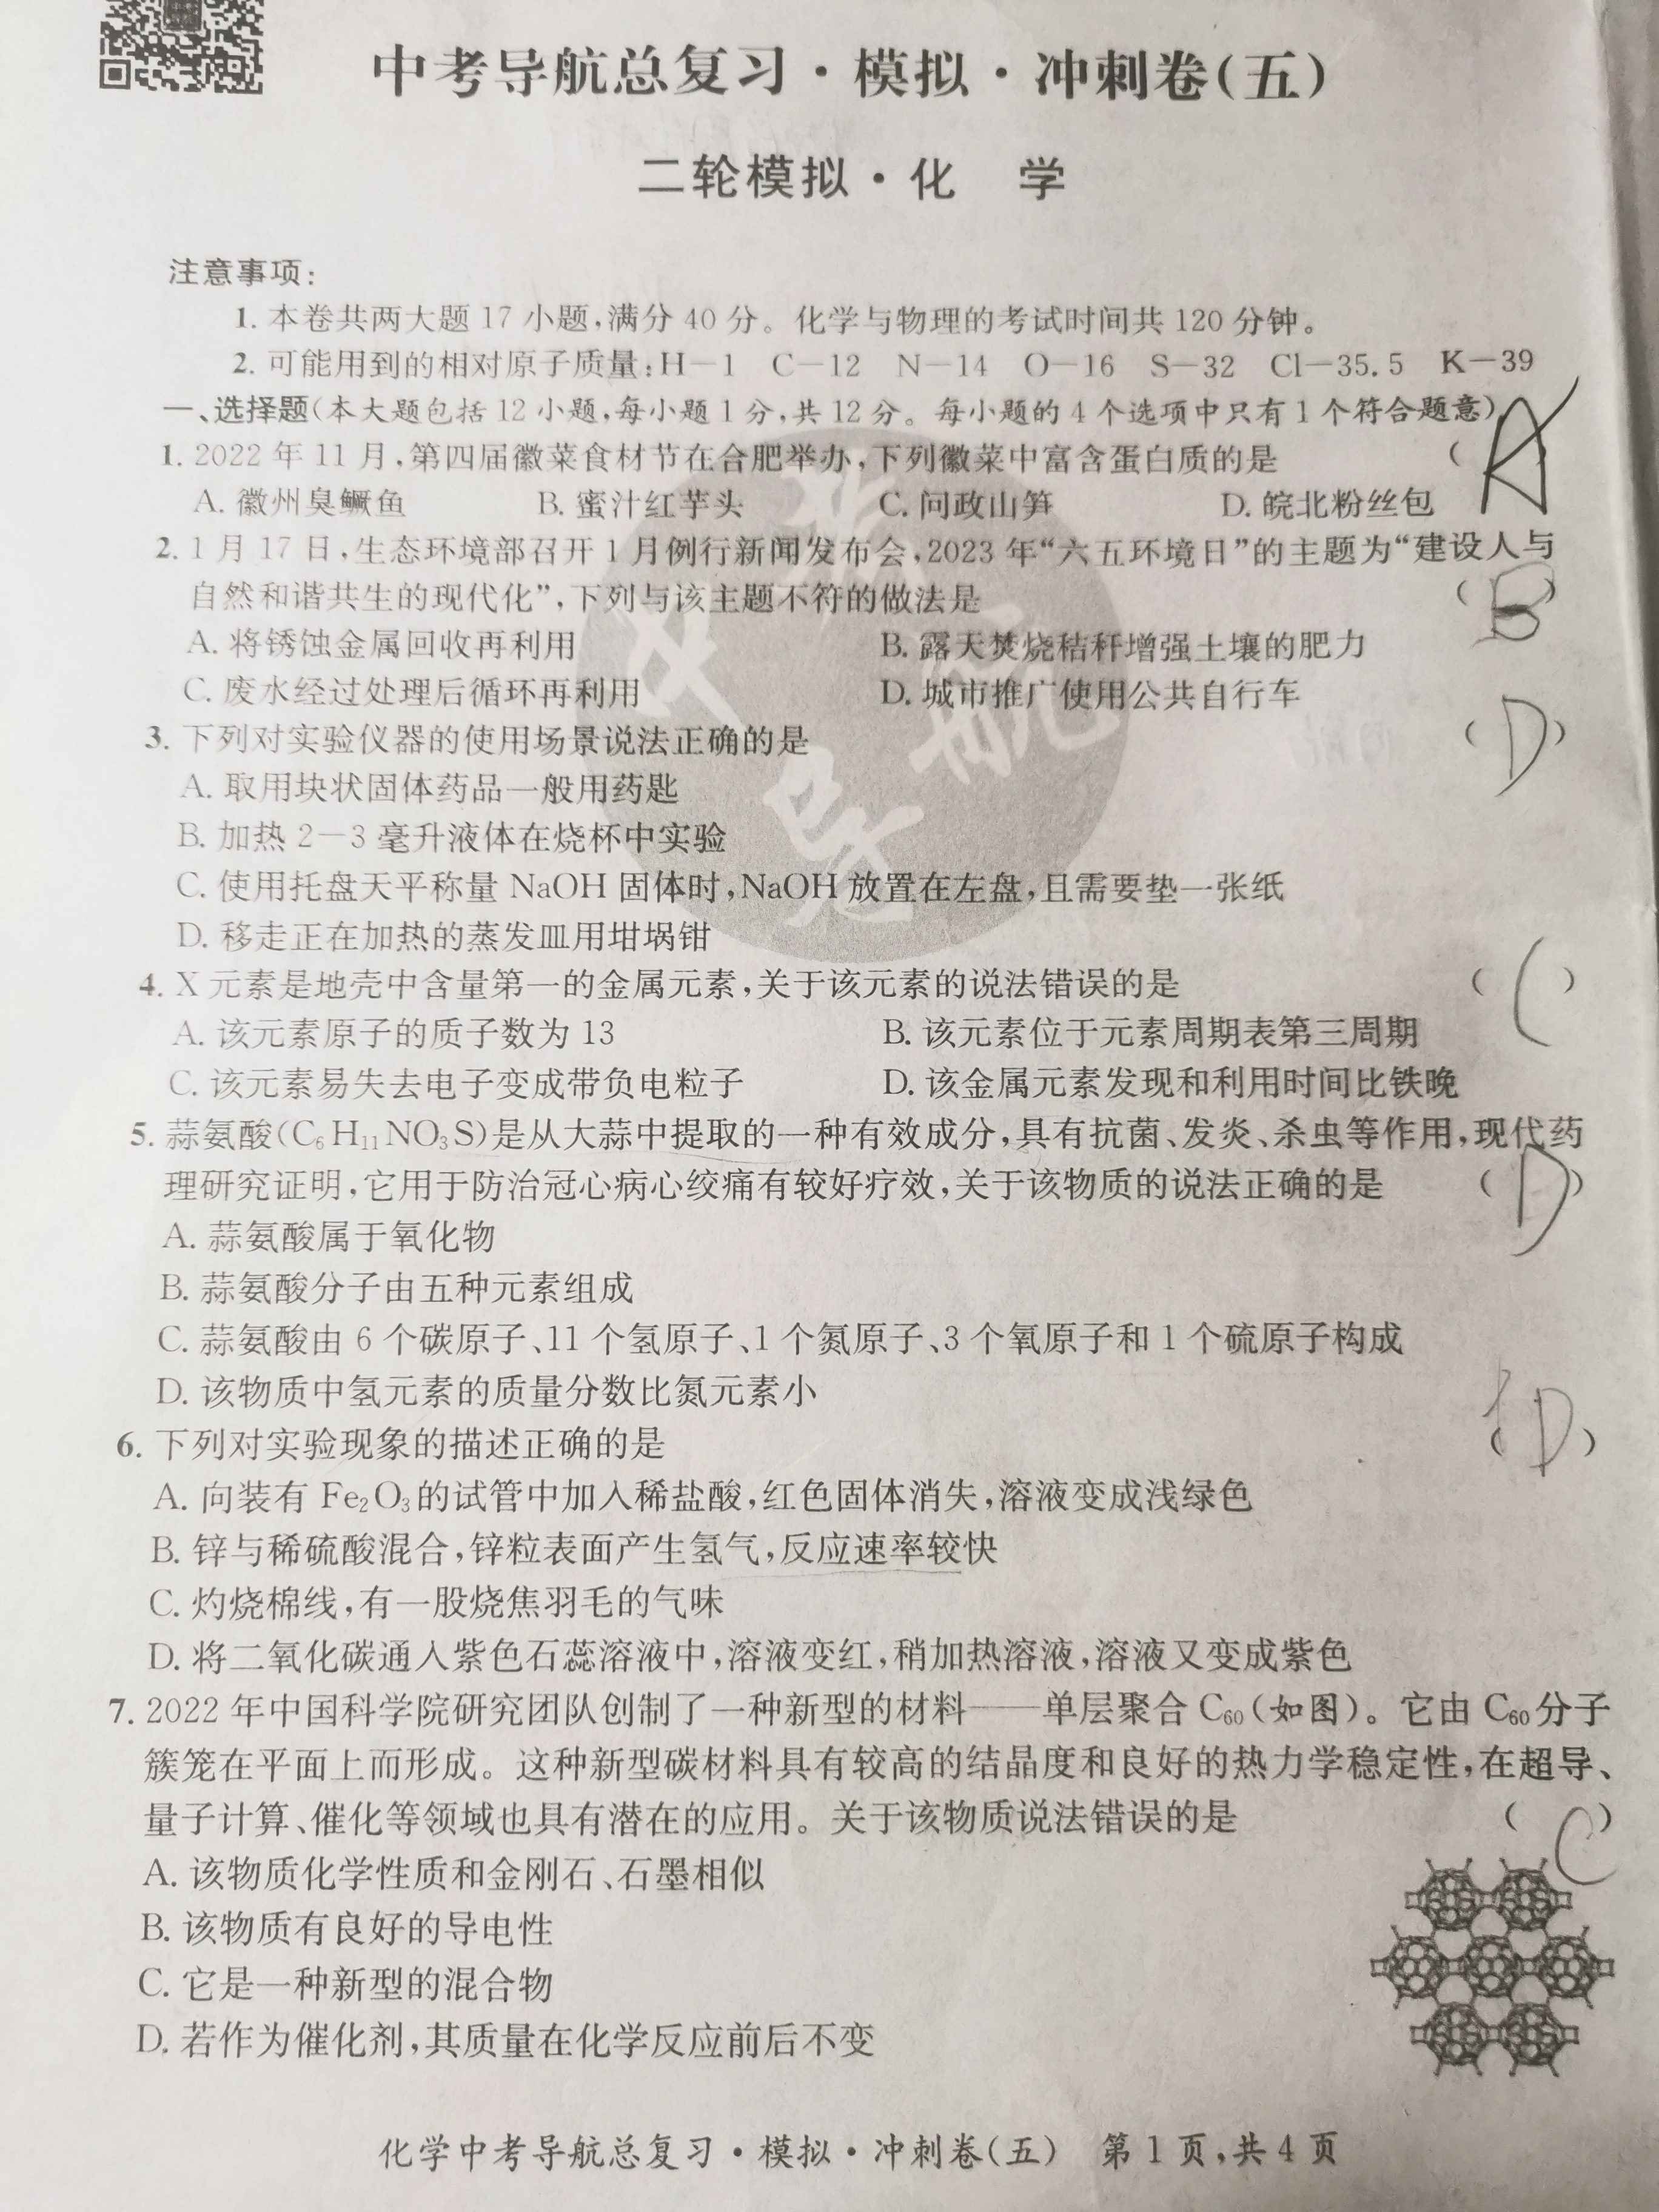 中考导航总复习·模拟·冲刺卷(五)
二轮模拟·化 学
注意事项:
1. 本卷共两大题 17 小题,满分 40 分。化学与物理的考试时间共 120 分钟。
2. 可能用到的相对原子质量:H—1 C—12 N—14 O—16 S—32 Cl—35.5 K—39
一、选择题(本大题包括 12 小题,每小题 1 分,共 12 分。每小题的 4 个选项中只有 1 个符合题意)
1. 2022 年 11 月,第四届徽菜食材节在合肥举办,下列徽菜中富含蛋白质的是 (A
A. 徽州臭鳜鱼 B. 蜜汁红芋头 C. 问政山笋 D. 皖北粉丝包
2. 1 月 17 日,生态环境部召开 1 月例行新闻发布会,2023 年“六五环境日”的主题为“建设人与
自然和谐共生的现代化”,下列与该主题不符的做法是 (B)
A. 将锈蚀金属回收再利用 B. 露天焚烧秸秆增强土壤的肥力
C. 废水经过处理后循环再利用 D. 城市推广使用公共自行车
3. 下列对实验仪器的使用场景说法正确的是 (D)
A. 取用块状固体药品一般用药匙
B. 加热 2—3 毫升液体在烧杯中实验
C. 使用托盘天平称量 NaOH 固体时,NaOH 放置在左盘,且需要垫一张纸
D. 移走正在加热的蒸发皿用坩埚钳
4. X 元素是地壳中含量第一的金属元素,关于该元素的说法错误的是 (C)
A. 该元素原子的质子数为 13 B. 该元素位于元素周期表第三周期
C. 该元素易失去电子变成带负电粒子 D. 该金属元素发现和利用时间比铁晚
5. 蒜氨酸(C₆H₁₁NO₃S)是从大蒜中提取的一种有效成分,具有抗菌、发炎、杀虫等作用,现代药
理研究证明,它用于防治冠心病心绞痛有较好疗效,关于该物质的说法正确的是 (D)
A. 蒜氨酸属于氧化物
B. 蒜氨酸分子由五种元素组成
C. 蒜氨酸由 6 个碳原子、11 个氢原子、1 个氮原子、3 个氧原子和 1 个硫原子构成
D. 该物质中氢元素的质量分数比氮元素小
6. 下列对实验现象的描述正确的是 (D)
A. 向装有 Fe₂O₃的试管中加入稀盐酸,红色固体消失,溶液变成浅绿色
B. 锌与稀硫酸混合,锌粒表面产生氢气,反应速率较快
C. 灼烧棉线,有一股烧焦羽毛的气味
D. 将二氧化碳通入紫色石蕊溶液中,溶液变红,稍加热溶液,溶液又变成紫色
7. 2022 年中国科学院研究团队创制了一种新型的材料——单层聚合 C₆₀(如图)。它由 C₆₀分子
簇笼在平面上而形成。这种新型碳材料具有较高的结晶度和良好的热力学稳定性,在超导、
量子计算、催化等领域也具有潜在的应用。关于该物质说法错误的是 (C)
A. 该物质化学性质和金刚石、石墨相似
B. 该物质有良好的导电性
C. 它是一种新型的混合物
D. 若作为催化剂,其质量在化学反应前后不变
化学中考导航总复习·模拟·冲刺卷(五) 第 1 页,共 4 页